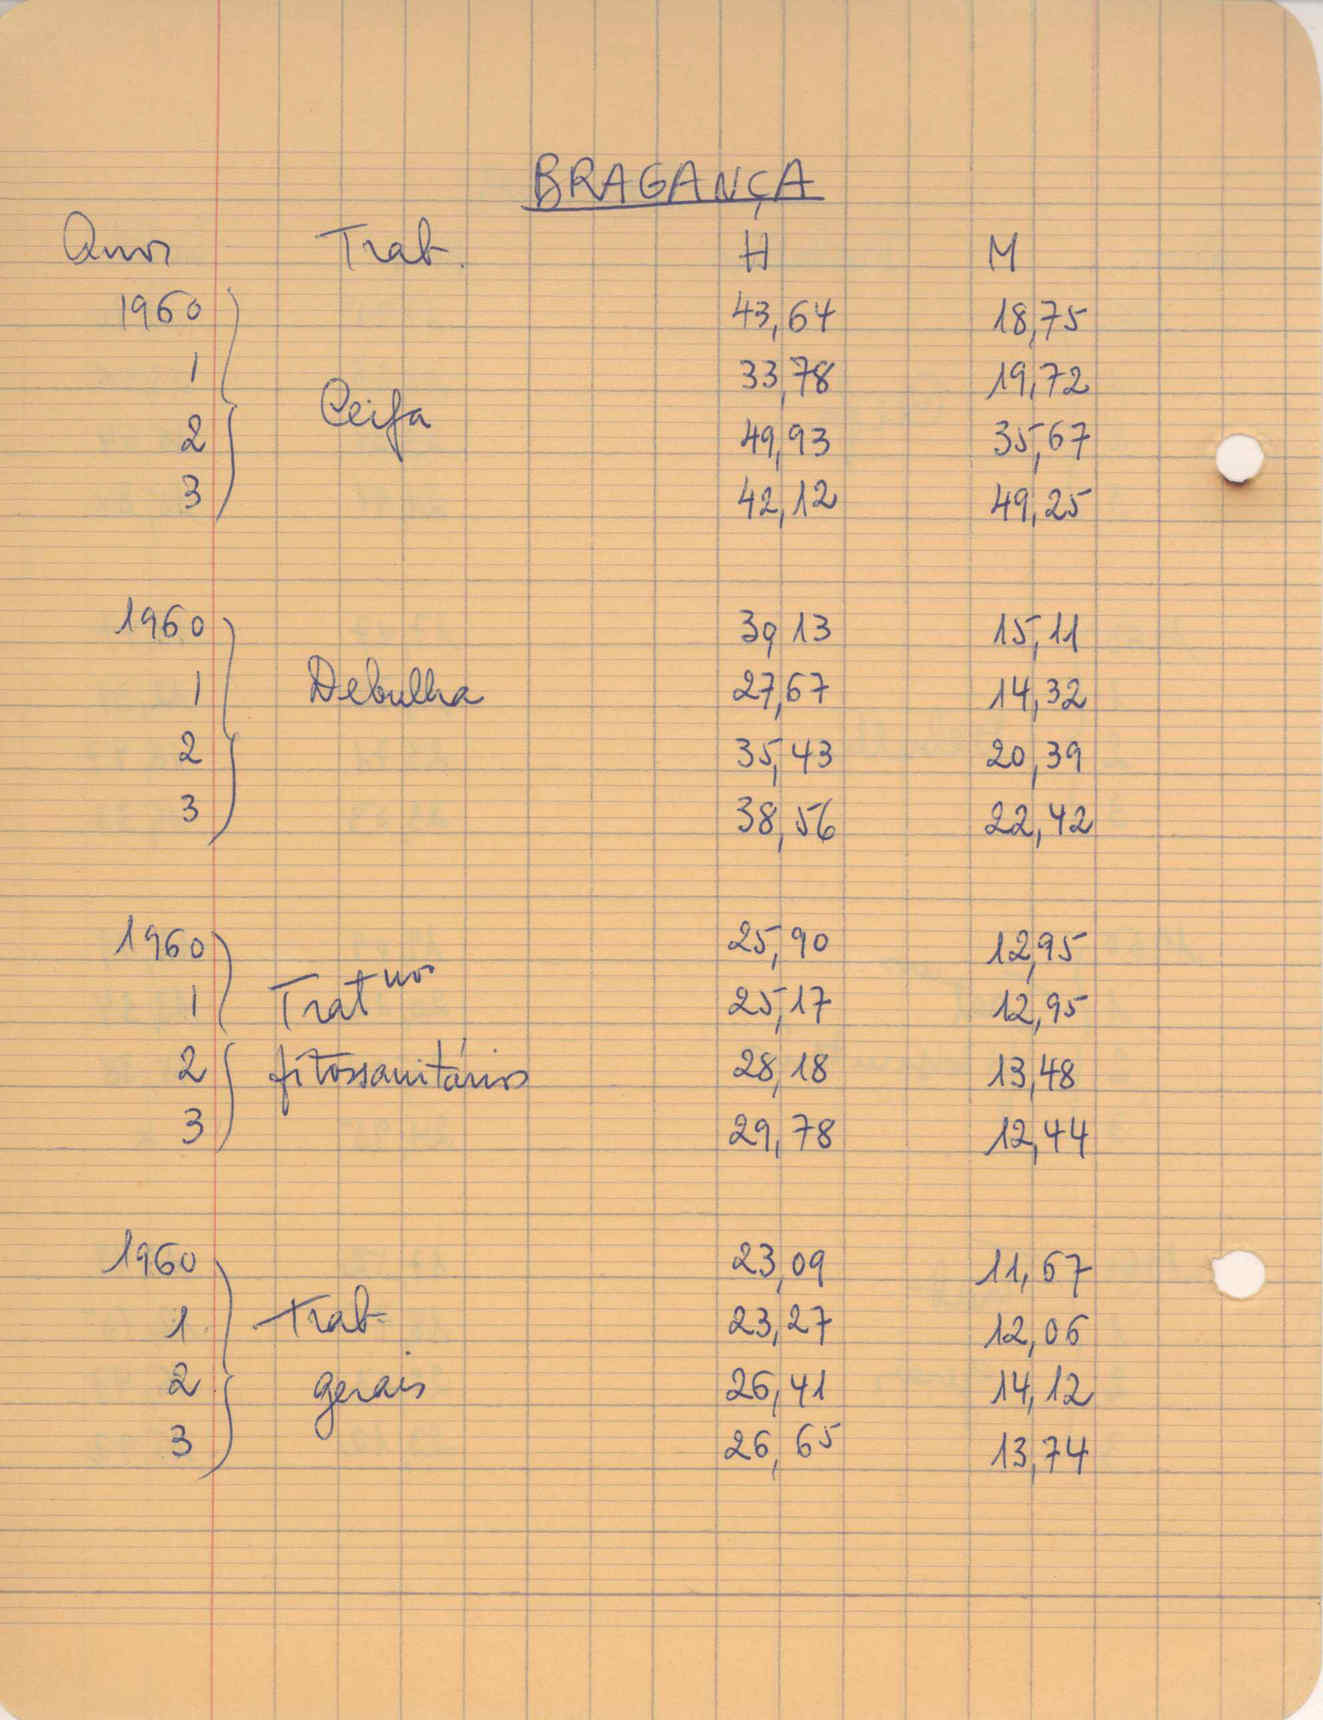 BRAGANÇA
Anos Trab. H M
1960 43,64 18,75
1 33,78 19,72
Ceifa
2 49,93 35,67
3 42,12 49,25
1960 39,13 15,11
1 Debulha 27,67 14,32
2 35,43 20,39
3 38,56 22,42
1960 25,90 12,95
1 Trat tos 25,17 12,95
2 fitossanitários 28,18 13,48
3 29,78 12,44
1960 23,09 11,67
1 Trab 23,27 12,06
2 gerais 26,41 14,12
3 26,65 13,74